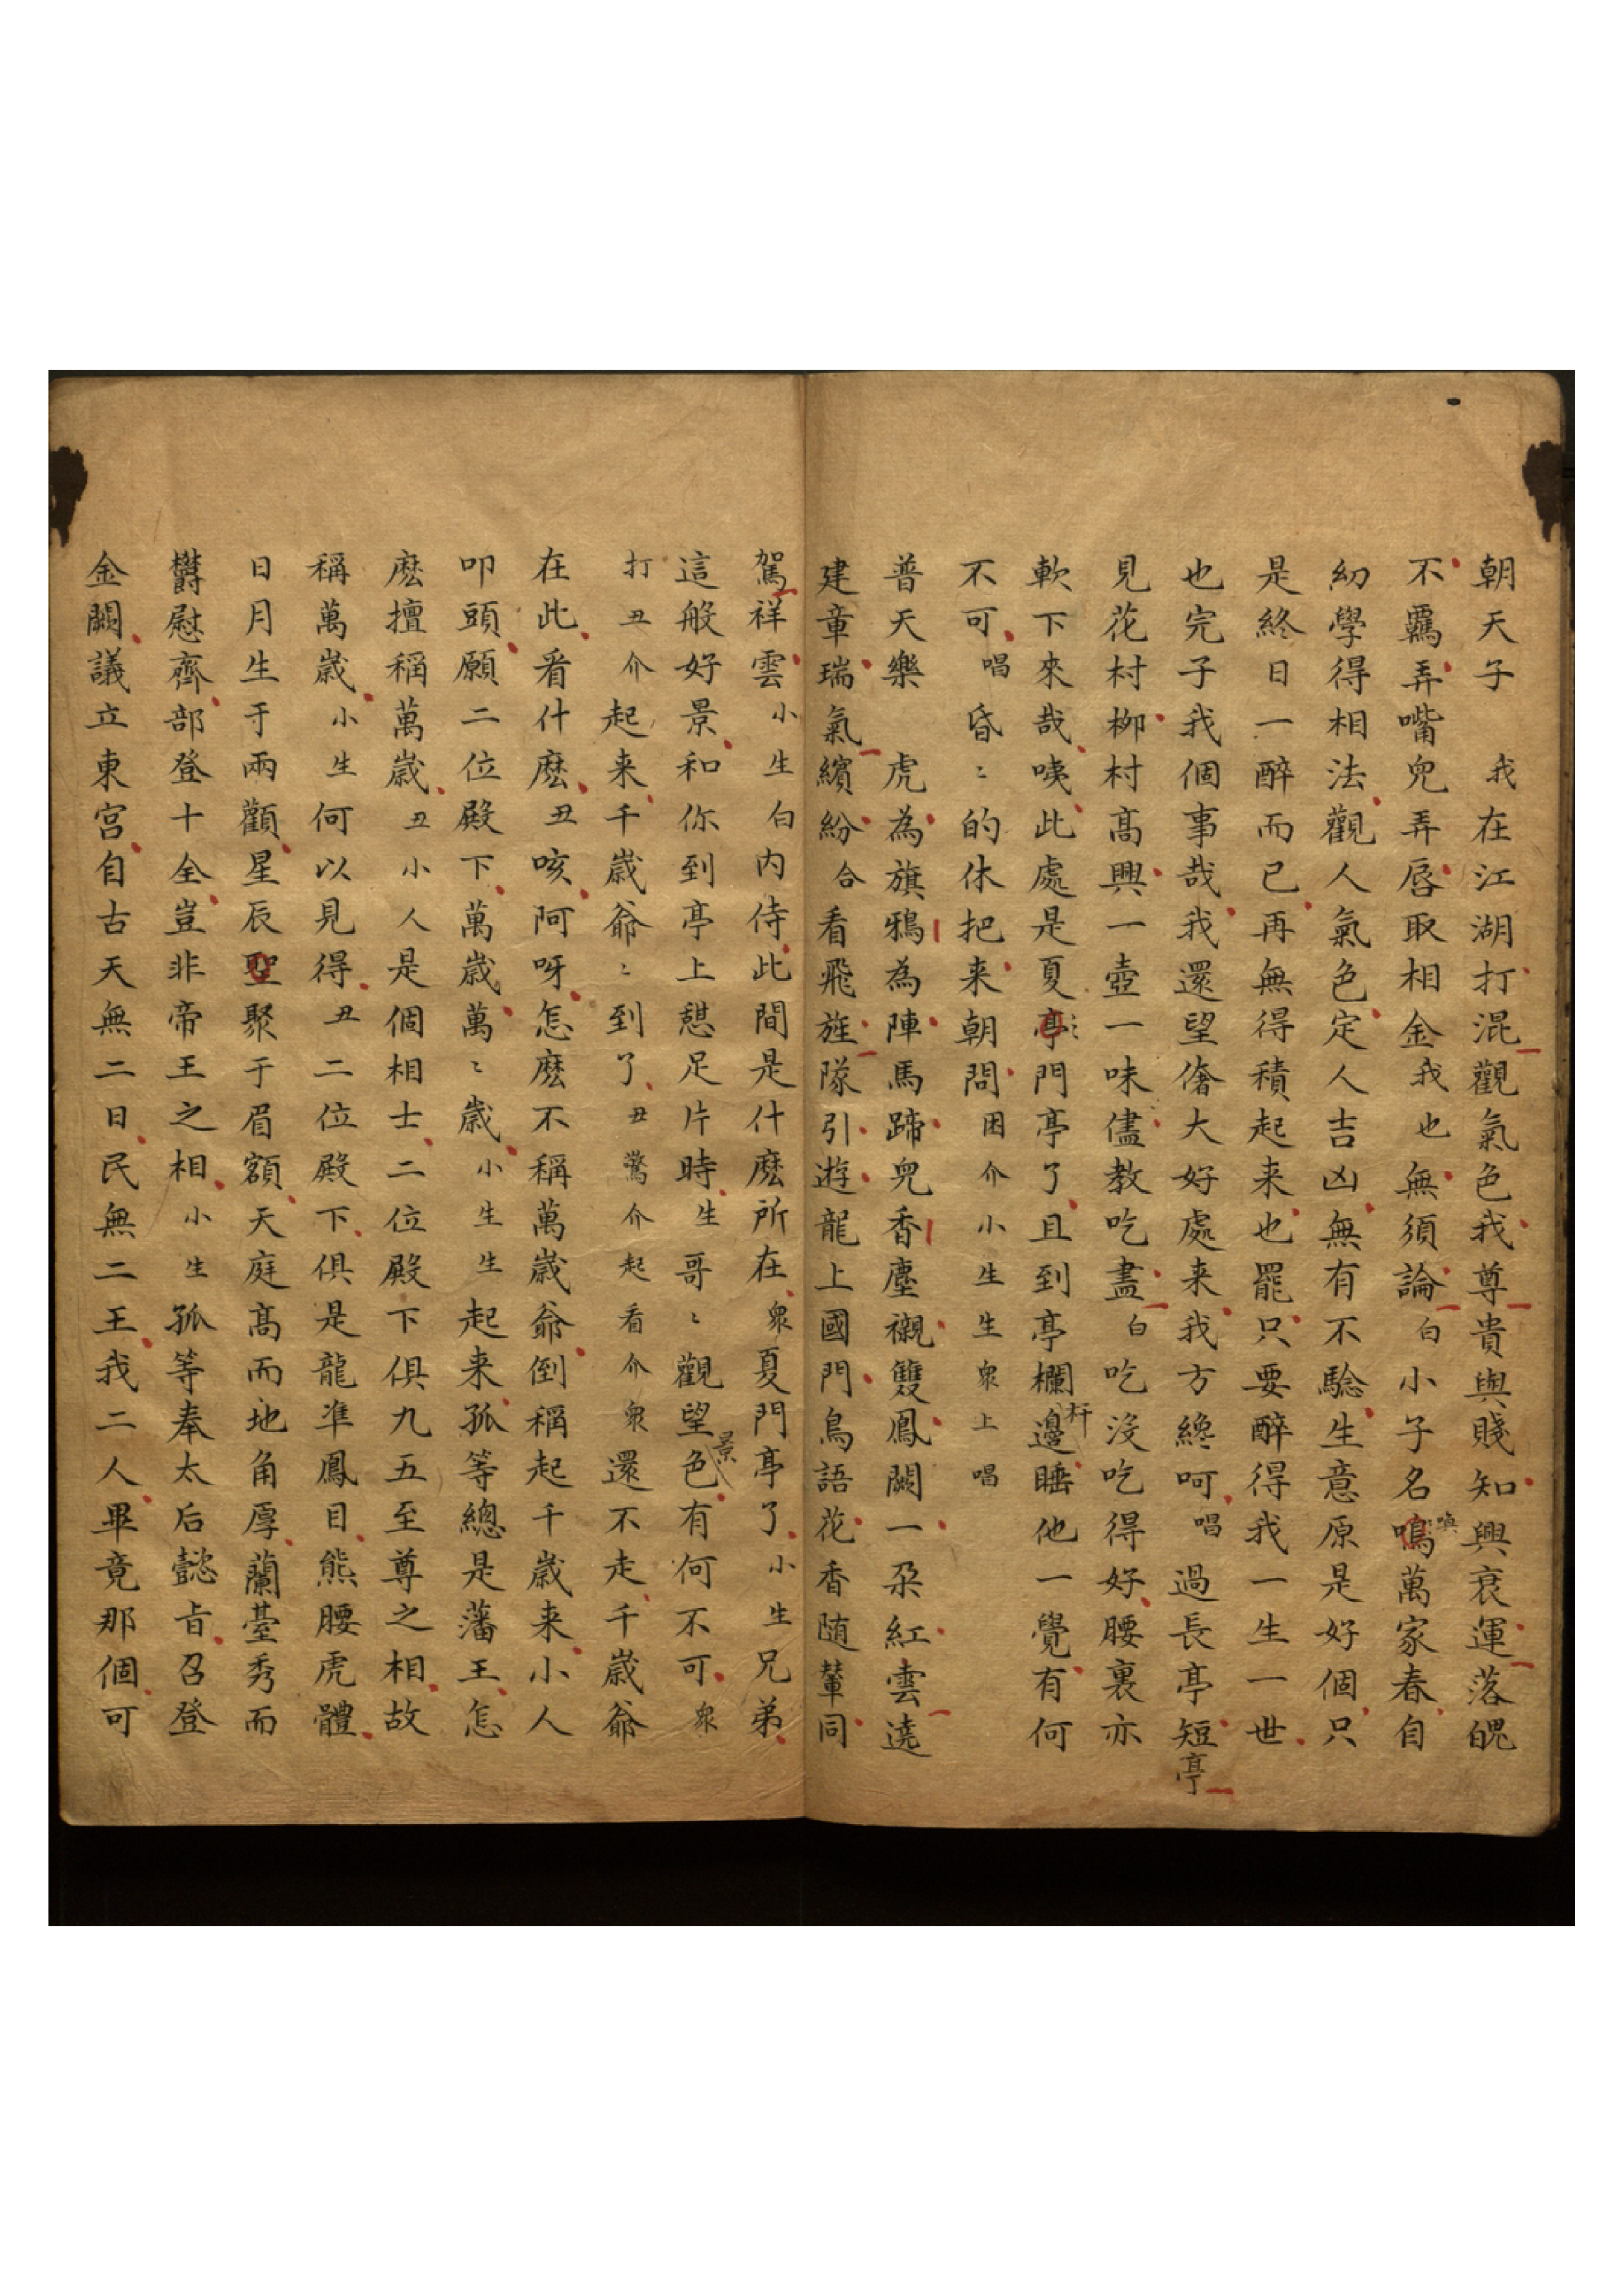 朝天子　我在江湖打混觀氣色我尊貴與賤知興衰運落魄
不羈弄嘴兒弄唇取相金我也無須論白小子名鳴喚萬家春自
幼學得相法觀人氣色定人吉凶無有不驗生意原是好個只
是終日一醉而已再無得積起来也罷只要醉得我一生一世
也完子我個事哉我還望偹大好處来我方纔呵唱過長亭短亭
見花村柳村高興一壺一味儘教吃盡白吃沒吃得好腰裏亦
軟下來哉咦此處是夏亭門亭了且到亭欄杆邊睡他一覺有何
不可唱昏〻的休把来朝問困介小生生眾上唱
普天樂　虎為旗鴉為陣馬蹄兒香塵襯雙鳳闕一朶紅雲遶
建章瑞氣繽紛合看飛旌隊引遊龍上國門鳥語花香随輦同
駕祥雲小生白內侍此間是什麽所在眾夏門亭了小生兄弟
這般好景和你到亭上憇足片時生哥〻觀望色景有何不可眾
打丑介起来千歲爺〻到了丑驚介起看介眾還不走千歲爺
在此看什麽丑咳阿呀怎麽不稱萬歲爺倒稱起千歲来小人
叩頭願二位殿下萬歲萬〻歲小生生起来孤等總是藩王怎
麽擅稱萬歲丑小人是個相士二位殿下俱九五至尊之相故
稱萬歲小生何以見得丑二位殿下俱是龍準鳳目熊腰虎體
日月生于兩顴星辰聖聚于眉額天庭高而地角厚蘭臺秀而
欝慰齊部登十全豈非帝王之相小生孤等奉太后懿旨召登
金闕議立東宮自古天無二日民無二王我二人畢竟那個可